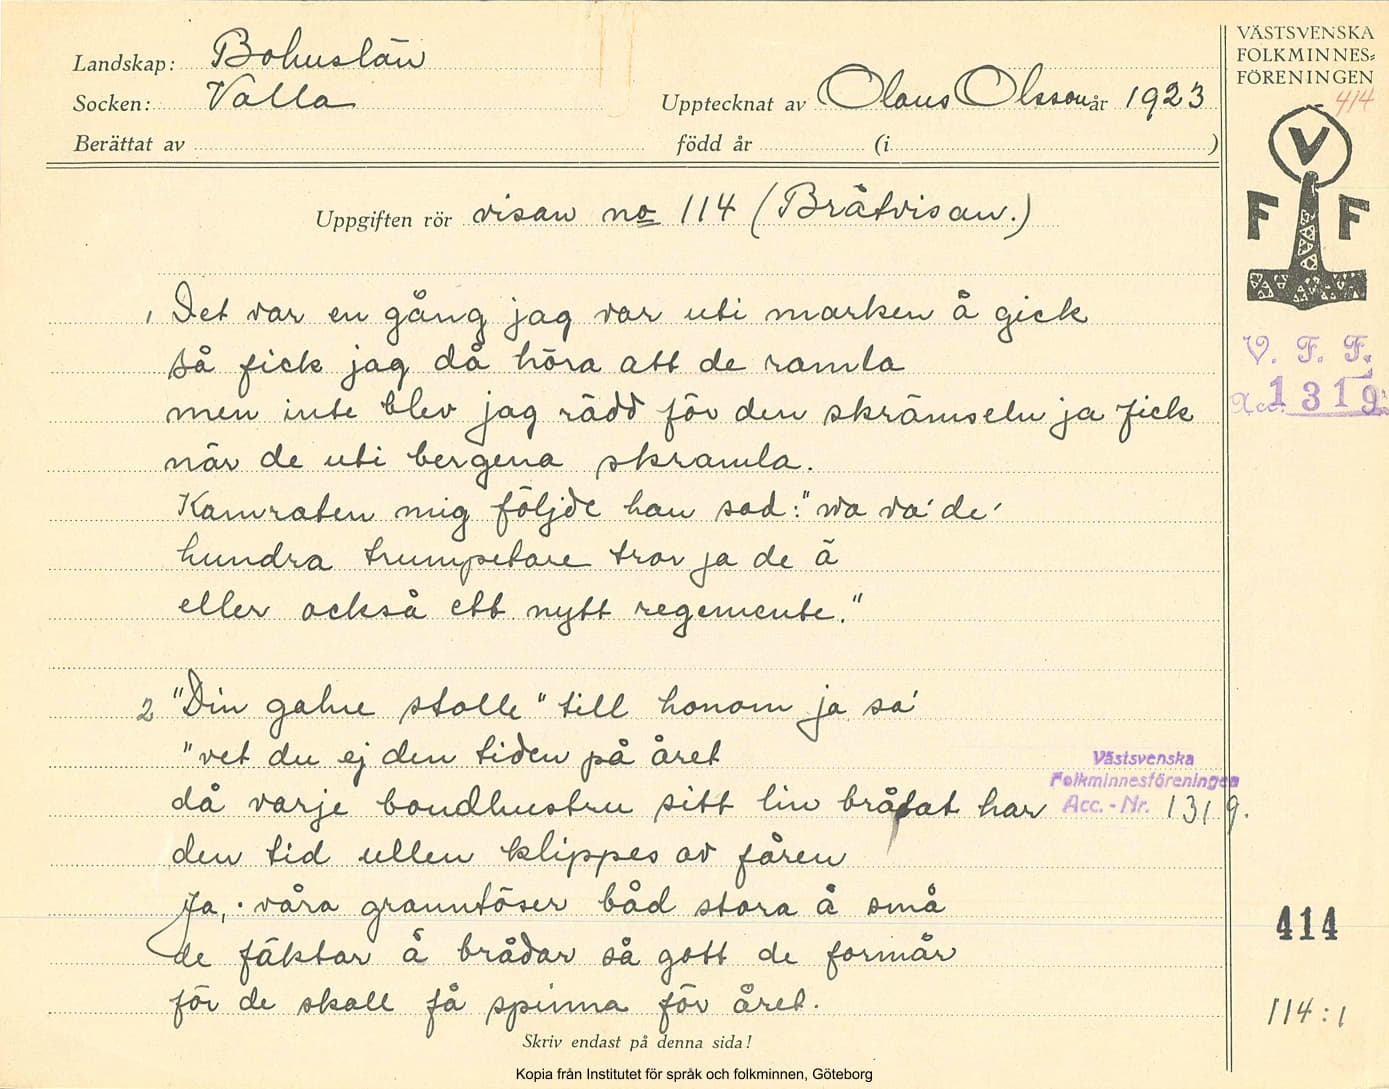 Landskap: Bohuslän
Socken: Valla
Upptecknat av Olaus Olsson år 1923
Berättat av
född år (i )
VÄSTSVENSKA
FOLKMINNES-
FÖRENINGEN
414
V
F F
V. F. F.
Acc. 1319
Uppgiften rör visan no 114 (Bråtvisan.)
1 Det var en gång jag var uti marken å gick
så fick jag då höra att de ramla
men inte blev jag rädd för den skrämseln ja fick
när de uti bergena skramla.
Kamraten mig följde han sad: "va va' de'
hundra trumpetare tror ja de ä
eller också ett nytt regemente."
2 "Din galne stolle" till honom ja sa'
"vet du ej den tiden på året
då varje bondhustru sitt lin brådat har
Västsvenska
Folkminnesföreningen
Acc.-Nr. 1319.
den tid ullen klippes av fåren
Ja, våra granntöser båd stora å små
de fäktar å brådar så gott de formår
för de skall få spinna för året.
414
114:1
Skriv endast på denna sida!
Kopia från Institutet för språk och folkminnen, Göteborg